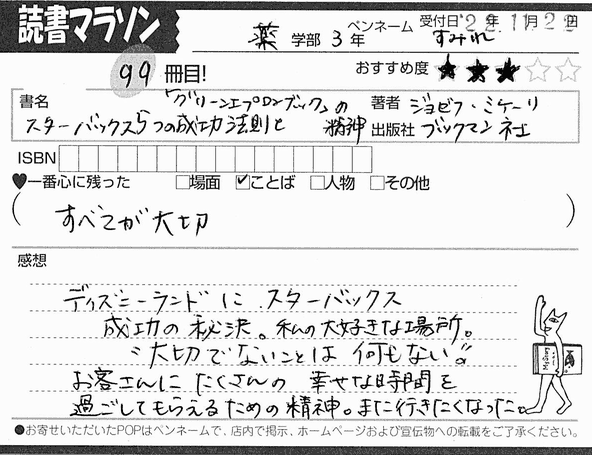 読書マラソン
薬 学部 3 年 ペンネーム すみれ 受付日 '22年11月22日
99 冊目! おすすめ度 ★★★☆☆
書名 スターバックス5つの成功法則と「グリーンエプロンブック」の精神
著者 ジョゼフ・ミケーリ
出版社 ブックマン社
ISBN
♥一番心に残った □場面 ☑ことば □人物 □その他
( すべてが大切 )
感想
ディズニーランドに スターバックス
成功の秘決。私の大好きな場所。
"大切でないことは何もない。"
お客さんに たくさんの 幸せな時間を
過ごしてもらえるための精神。また行きたくなった。
●お寄せいただいたPOPはペンネームで、店内で掲示、ホームページおよび宣伝物への転載をご了承ください。